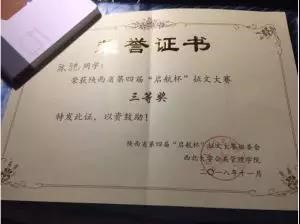 荣誉证书
同学：
荣获陕西省第四届“启航杯”征文大赛
三等奖
特发此证，以资鼓励！
陕西省第四届“启航杯”征文大赛组委会
西北大学公共管理学院
二〇一八年十一月